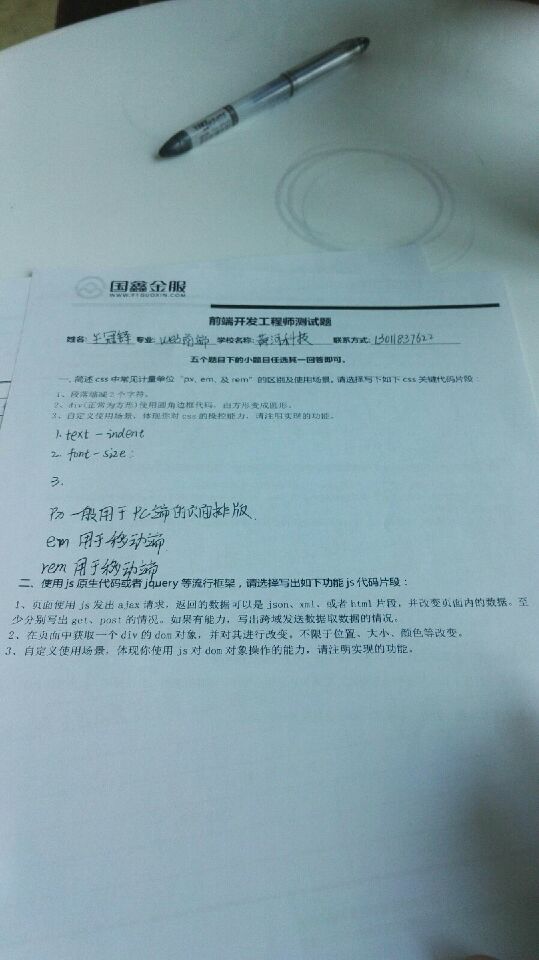 国鑫金服
WWW.P1GUOXIN.COM
前端开发工程师测试题
姓名: 王冠锋 专业: WEB前端 学校名称: 黄河科技 联系方式: 13011837622
五个题目下的小题目任选其一回答即可。
一、简述css中常见计量单位“px、em、及rem”的区别及使用场景。请选择写下如下css关键代码片段:
1、段落缩减2个字符。
2、div(正常为方形)使用圆角边框代码,由方形变成圆形。
3、自定义使用场景,体现你对css的操控能力,请注明实现的功能。
1. text-indent
2. font-size:
3.
Px 一般用于PC端的页面排版.
em 用于移动端
rem 用于移动端
二、使用js原生代码或者jquery等流行框架,请选择写出如下功能js代码片段:
1、页面使用js发出ajax请求,返回的数据可以是json、xml、或者html片段,并改变页面内的数据。至
少分别写出get、post的情况。如果有能力,写出跨域发送数据取数据的情况。
2、在页面中获取一个div的dom对象,并对其进行改变。不限于位置、大小、颜色等改变。
3、自定义使用场景,体现你使用js对dom对象操作的能力,请注明实现的功能。